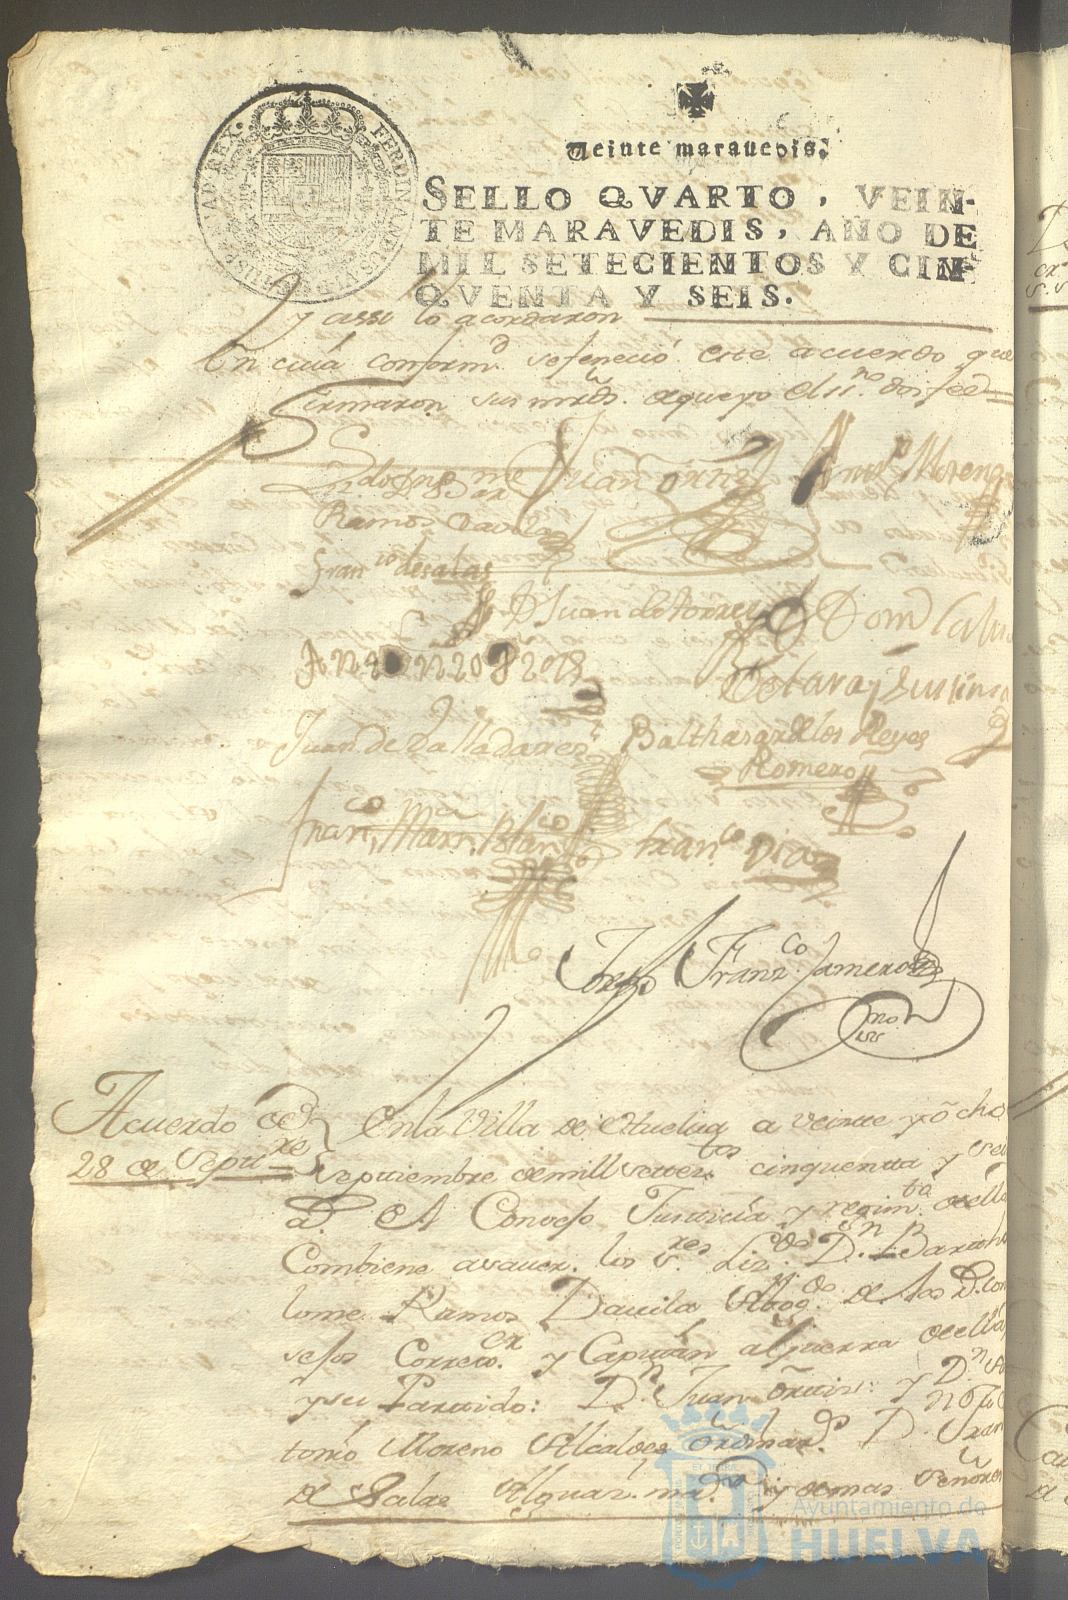 FERDINANDUS VI D G HISPANIAD REX
Veinte marauedis.
SELLO QVARTO, VEIN-
TE MARAVEDIS, AÑO DE
MIL SETECIENTOS Y CIN-
QVENTA Y SEIS.
y assi lo acordaron
En cuia conform.d se feneció este acuerdo que
firmaron sus mrds. de que yo el ss.no doi fee
Juan Ortiz
Moreno
Ramos Davila
Fran.co de Salas
D Juan de Torres
Juan de Valladares
Balthasar de los Reyes
Romero
Fran.co Mar.n Blan.co
Fran.co Diaz
Jorge Franz.co Jamero
Acuerdo de
28 de Septi.re
En la Villa de Huelua a veinte y ocho
septiembre de mill setez.tos cinquentta y sei
a. El Consejo Justicia y regim.to de ella
Combiene a sauer. los s.res Liz.do D.n Bartho
lome Ramos Dauila Abog.do de los R. con
sejos Correx.or y Capitan a guerra de ella
y su Partido: D.n Juan Ortiz: y D.n An
tonio Moreno Alcaldes ordinar.s D.n Fran
de Salas Alguaz. ma.or y demas señores
Ayuntamiento de
HUELVA